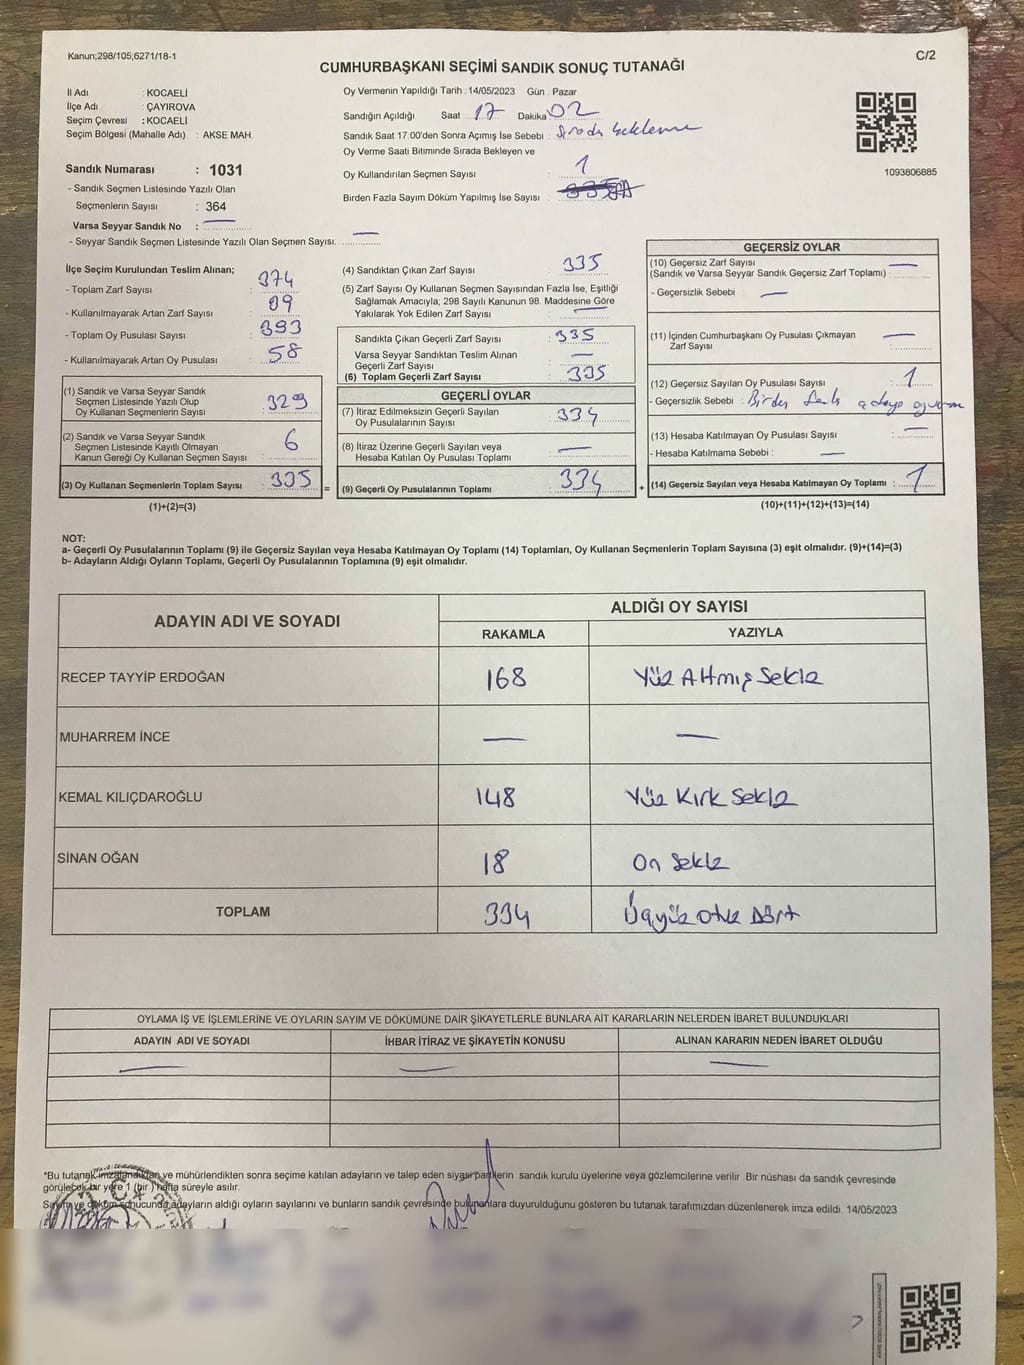 Kanun;298/105;6271/18-1
C/2
CUMHURBAŞKANI SEÇİMİ SANDIK SONUÇ TUTANAĞI
İl Adı : KOCAELİ
İlçe Adı : ÇAYIROVA
Seçim Çevresi : KOCAELİ
Seçim Bölgesi (Mahalle Adı) : AKSE MAH.
Oy Vermenin Yapıldığı Tarih : 14/05/2023 Gün : Pazar
Sandığın Açıldığı Saat 17 Dakika 02
Sandık Saat 17.00'den Sonra Açımış İse Sebebi : Sırada bekleme
Oy Verme Saati Bitiminde Sırada Bekleyen ve
Oy Kullandırılan Seçmen Sayısı : 1
Birden Fazla Sayım Döküm Yapılmış İse Sayısı :
1093806885
Sandık Numarası : 1031
- Sandık Seçmen Listesinde Yazılı Olan
Seçmenlerin Sayısı : 364
Varsa Seyyar Sandık No : —
- Seyyar Sandık Seçmen Listesinde Yazılı Olan Seçmen Sayısı. —
İlçe Seçim Kurulundan Teslim Alınan;
- Toplam Zarf Sayısı : 374
- Kullanılmayarak Artan Zarf Sayısı : 39
- Toplam Oy Pusulası Sayısı : 393
- Kullanılmayarak Artan Oy Pusulası : 58
(1) Sandık ve Varsa Seyyar Sandık
Seçmen Listesinde Yazılı Olup
Oy Kullanan Seçmenlerin Sayısı : 329
(2) Sandık ve Varsa Seyyar Sandık
Seçmen Listesinde Kayıtlı Olmayan
Kanun Gereği Oy Kullanan Seçmen Sayısı : 6
(3) Oy Kullanan Seçmenlerin Toplam Sayısı : 335
(1)+(2)=(3)
=
(4) Sandıktan Çıkan Zarf Sayısı : 335
(5) Zarf Sayısı Oy Kullanan Seçmen Sayısından Fazla İse, Eşitliği
Sağlamak Amacıyla, 298 Sayılı Kanunun 98. Maddesine Göre
Yakılarak Yok Edilen Zarf Sayısı : —
Sandıkta Çıkan Geçerli Zarf Sayısı : 335
Varsa Seyyar Sandıktan Teslim Alınan
Geçerli Zarf Sayısı : —
(6) Toplam Geçerli Zarf Sayısı : 335
GEÇERLİ OYLAR
(7) İtiraz Edilmeksizin Geçerli Sayılan
Oy Pusulalarının Sayısı : 334
(8) İtiraz Üzerine Geçerli Sayılan veya
Hesaba Katılan Oy Pusulası Toplamı : —
(9) Geçerli Oy Pusulalarının Toplamı : 334
+
GEÇERSİZ OYLAR
(10) Geçersiz Zarf Sayısı
(Sandık ve Varsa Seyyar Sandık Geçersiz Zarf Toplamı) : —
- Geçersizlik Sebebi : —
(11) İçinden Cumhurbaşkanı Oy Pusulası Çıkmayan
Zarf Sayısı : —
(12) Geçersiz Sayılan Oy Pusulası Sayısı : 1
- Geçersizlik Sebebi : Birden fazla adaya oy verme
(13) Hesaba Katılmayan Oy Pusulası Sayısı : —
- Hesaba Katılmama Sebebi : —
(14) Geçersiz Sayılan veya Hesaba Katılmayan Oy Toplamı : 1
(10)+(11)+(12)+(13)=(14)
NOT:
a- Geçerli Oy Pusulalarının Toplamı (9) ile Geçersiz Sayılan veya Hesaba Katılmayan Oy Toplamı (14) Toplamları, Oy Kullanan Seçmenlerin Toplam Sayısına (3) eşit olmalıdır. (9)+(14)=(3)
b- Adayların Aldığı Oyların Toplamı, Geçerli Oy Pusulalarının Toplamına (9) eşit olmalıdır.
ADAYIN ADI VE SOYADI ALDIĞI OY SAYISI
RAKAMLA YAZIYLA
RECEP TAYYİP ERDOĞAN 168 Yüz Altmış Sekiz
MUHARREM İNCE — —
KEMAL KILIÇDAROĞLU 148 Yüz Kırk Sekiz
SİNAN OĞAN 18 On Sekiz
TOPLAM 334 Üçyüz Otuz Dört
OYLAMA İŞ VE İŞLEMLERİNE VE OYLARIN SAYIM VE DÖKÜMÜNE DAİR ŞİKAYETLERLE BUNLARA AİT KARARLARIN NELERDEN İBARET BULUNDUKLARI
ADAYIN ADI VE SOYADI İHBAR İTİRAZ VE ŞİKAYETİN KONUSU ALINAN KARARIN NEDEN İBARET OLDUĞU
— — —
*Bu tutanak imzalandıktan ve mühürlendikten sonra seçime katılan adayların ve talep eden siyasi partilerin sandık kurulu üyelerine veya gözlemcilerine verilir .Bir nüshası da sandık çevresinde
görülecek bir yere 1 (bir ) hafta süreyle asılır.
Sayım ve döküm sonucunda adayların aldığı oyların sayılarını ve bunların sandık çevresinde bulunanlara duyurulduğunu gösteren bu tutanak tarafımızdan düzenlenerek imza edildi. 14/05/2023